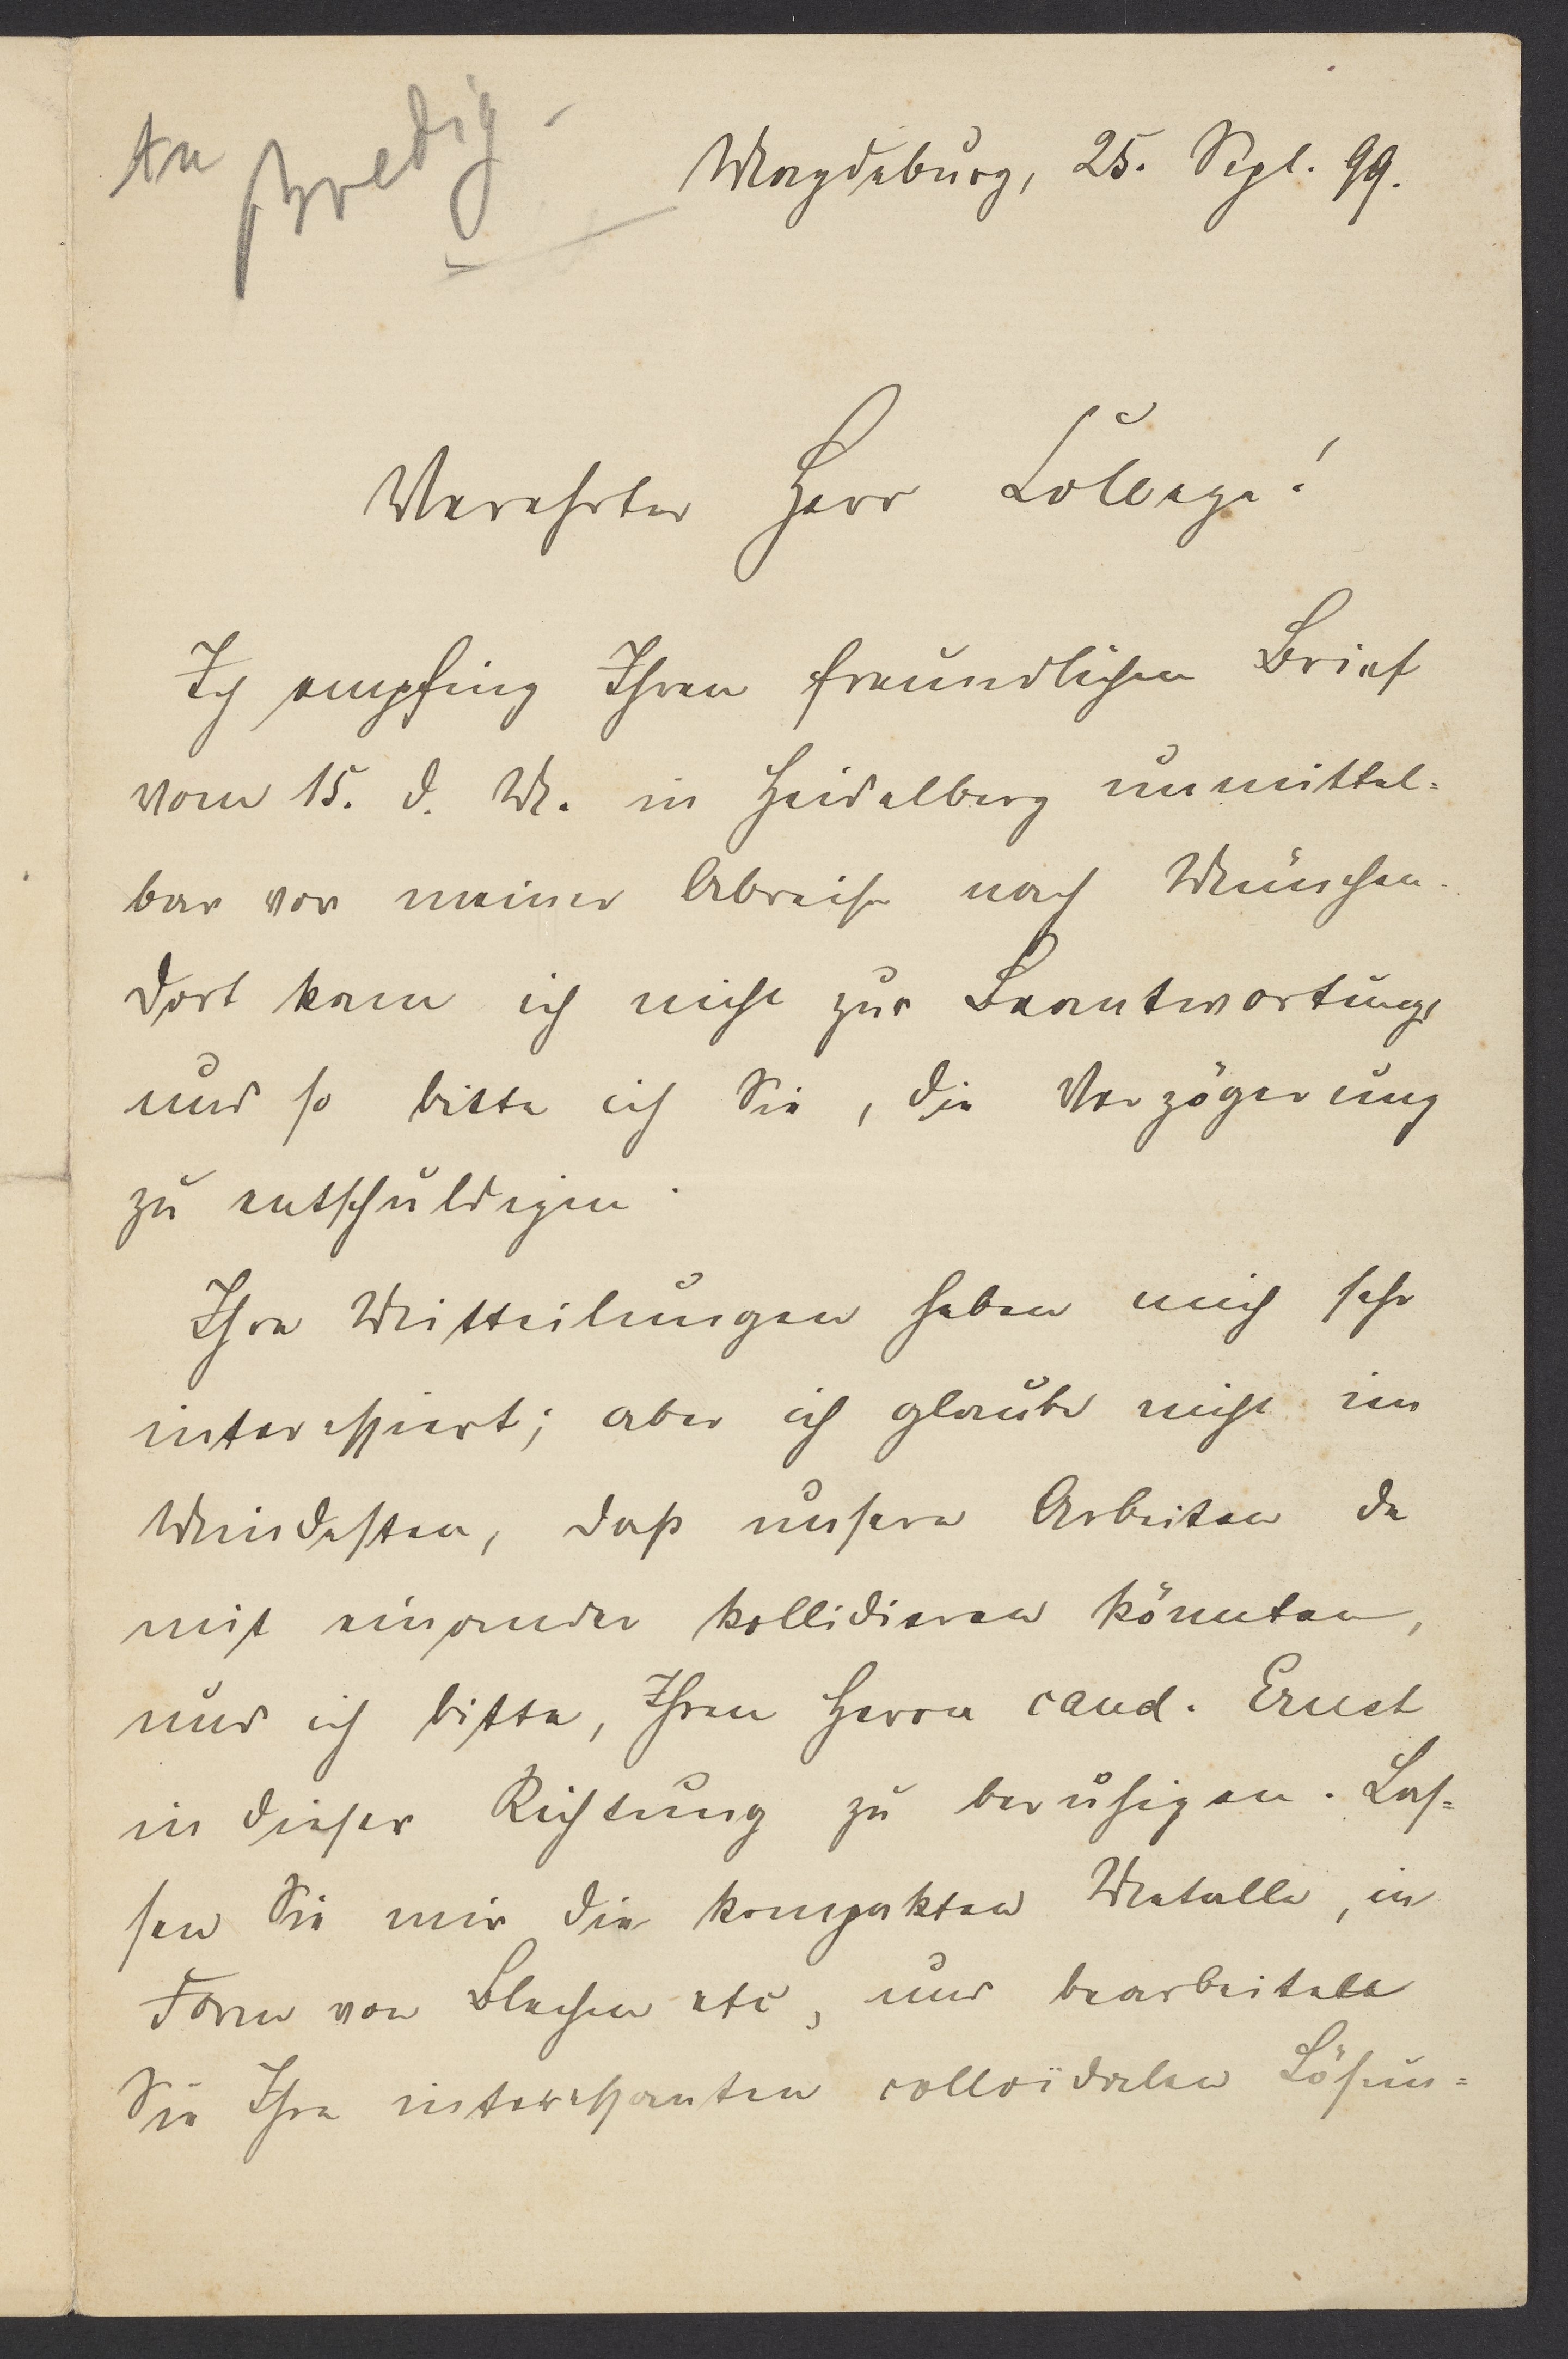 An Bredig
Magdeburg, 25. Sept. 99.
Verehrter Herr College!
Ich empfing Ihren freundlichen Brief
vom 15. d. M. in Heidelberg unmittel-
bar vor meiner Abreise nach München.
Dort kam ich nicht zur Beantwortung,
und so bitte ich Sie, die Verzögerung
zu entschuldigen.
Ihre Mitteilungen haben mich sehr
interessiert; aber ich glaube nicht im
Mindesten, daß unsere Arbeiten da
mit einander kollidieren könnten,
und ich bitte, Ihren Herrn cand. Ernst
in dieser Richtung zu beruhigen. Las-
sen Sie mir die kompakten Metalle, in
Form von Blechen etc, und bearbeiten
Sie Ihre interessanten colloïdalen Lösun-